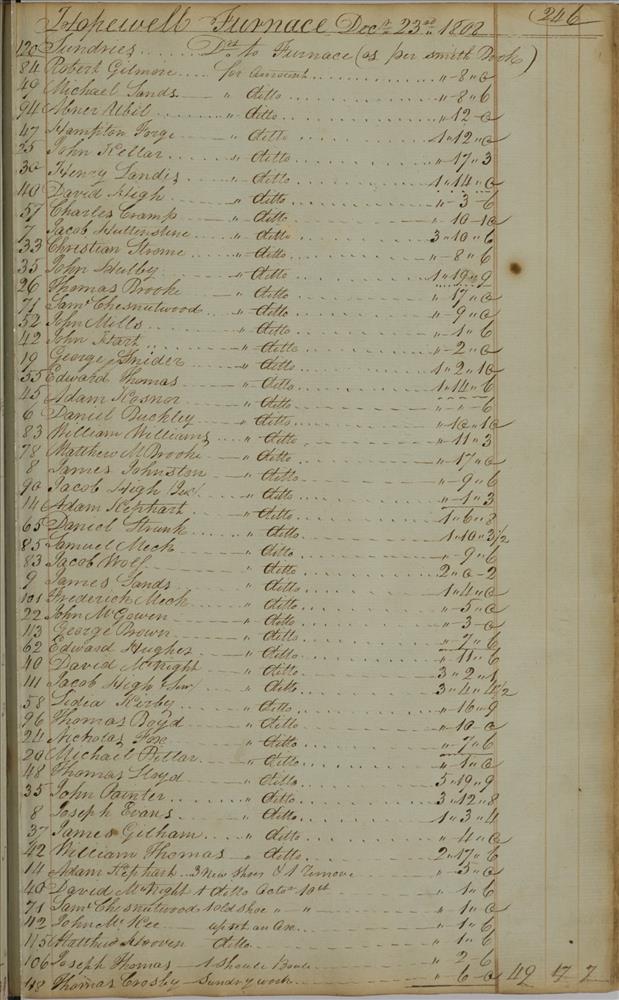 246
Hopewell Furnace Decr. 23rd 1808
120 Sundries Drs to Furnace (as per smith Book)
84 Robert Gilmore for amount " 8 " 0
49 Michael Sands " ditto " 8 " 6
94 Abner Ubil " ditto " 12 - 0
47 Hampton Forge " ditto 1 " 12 " 0
55 John Kellar " ditto " 17 " 3
30 Henry Landis " ditto 1 " 14 " 0
40 David High " ditto " 3 - 6
57 Charles Cramp " ditto " 10 - 10
7 Jacob Huttenstine " ditto 3 " 10 " 6
33 Christian Strome " ditto " 8 " 6
35 John Hulby " ditto 1 " 19 " 9
26 Thomas Brooke " ditto " 17 " 0
71 Saml Chesnutwood " ditto " 9 " 0
52 John Mills " ditto " 1 " 6
42 John Hart " ditto " 2 " 0
19 George Snider " ditto 1 " 2 " 10
55 Edward Thomas " ditto 1 " 14 " 6
45 Adam Kosner " ditto " " 6
6 Daniel Buckley " ditto " 10 " 10
83 William Williams " ditto " 11 " 3
78 Matthew M Brooke " ditto " 17 " 0
8 James Johnston " ditto " 9 " 6
90 Jacob High " ditto " 1 " 3
14 Adam Kephart " ditto 1 " 6 " 8
65 Daniel Strunk " ditto 1 " 10 " 3 1/2
85 Samuel Meck " ditto " 9 " 6
83 Jacob Wolf " ditto 2 " 0 - 2
9 James Sands " ditto 1 " 4 " 0
101 Frederick Meck " ditto " 5 " 0
22 John McGowen " ditto " 3 - 0
113 George Brown " ditto " 7 " 6
62 Edward Hughes " ditto " 11 " 6
40 David McKight " ditto 3 " 2 " 1
111 Jacob High Senr " ditto 3 " 4 " 4 1/2
58 Lidea Kirby " ditto " 16 " 9
96 Thomas Boyd " ditto " 10 - 0
24 Nicholas Fox " ditto " 7 " 6
20 Michael " ditto " 1 " 0
48 Thomas Lloyd " ditto 5 " 19 " 9
35 John Painter " ditto 3 " 12 " 8
8 Joseph Evans " ditto 1 " 3 " 4
37 James Gilham " ditto " 4 " 0
42 William Thomas " ditto 2 " 17 " 6
14 Adam Kephart 3 New shoes & 1 Remove " 5 " 0
40 David McKight 1 ditto Octor 10th " 1 " 6
71 Saml Chesnutwood 1 old shoe " " " 1 " 0
42 John McKee upset an Axe " 1 " 6
115 Matthew Hooven ditto " 1 " 6
106 Joseph Thomas 1 " 2 - 6
48 Thomas Crosby Sundry work " 6 - 0 49 17 7